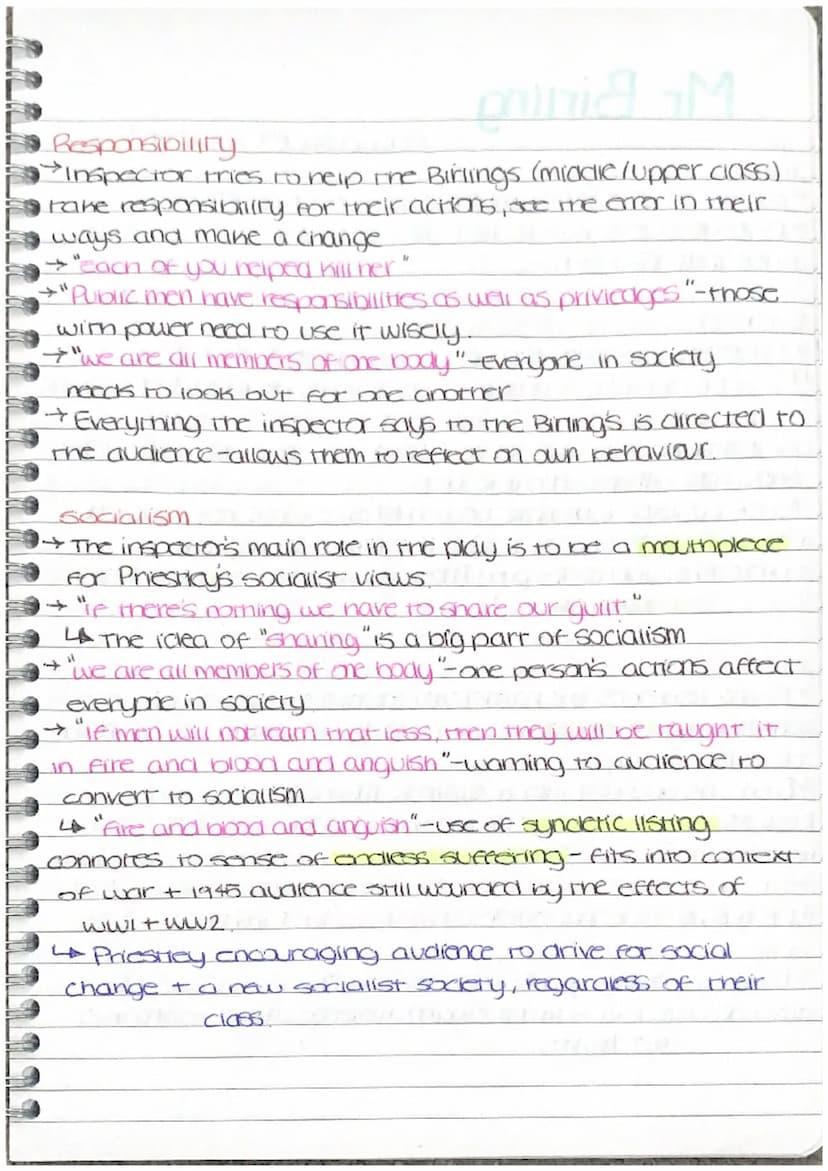 Mr Birling
Responsibility
→ Inspector tries to help the Birlings (middle/upper class)
take responsibility for their actions, see the error in their
ways and make a change
→ "each of you helped kill her"
→ "Public men have responsibilities as well as priviedges" - those
with power need to use it wisely.
→ "we are all members of one body" - everyone in society
needs to look out for one another
→ Everything the inspector says to the Birling's is directed to
the audience - allows them to reflect on own behaviour.
Socialism
→ The inspector's main role in the play is to be a mouthpiece
for Priestley's socialist views.
→ "if there's nothing we have to share our guilt"
↳ The idea of "sharing" is a big part of socialism
→ "we are all members of one body" - one person's actions affect
everyone in society
→ "If men will not learn that less, then they will be taught it
in fire and blood and anguish" - warning to audience to
convert to socialism
↳ "Fire and blood and anguish" - use of syndetic listing
connotes to sense of endless suffering - fits into context
of war + 1945 audience still wounded by the effects of
WW1 + WW2.
↳ Priestley encouraging audience to drive for social
change + a new socialist society, regardless of their
class.